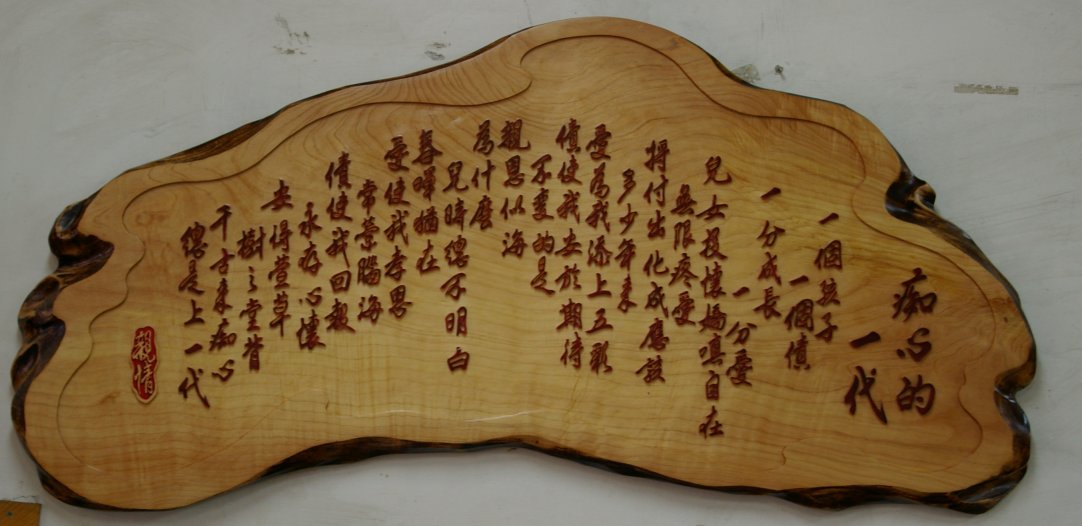 痴心的
一代
一個孩子
一個債
一分成長
一分愛
兒女投懷嬌嗔自在
無限疼愛
將付出化成應該
多少年來
愛為我添上五彩
債使我安於期待
不變的是
親恩似海
為什麼
兒時總不明白
春暉猶在
愛使我孝思
常縈腦海
債使我回報
永存心懷
安得萱草
樹之堂背
千古來痴心
總是上一代
親情